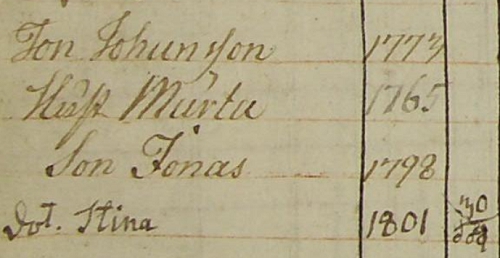 Jon Johansson 1773
Hust Märta 1765
Son Jonas 1798
Dot. Stina 1801